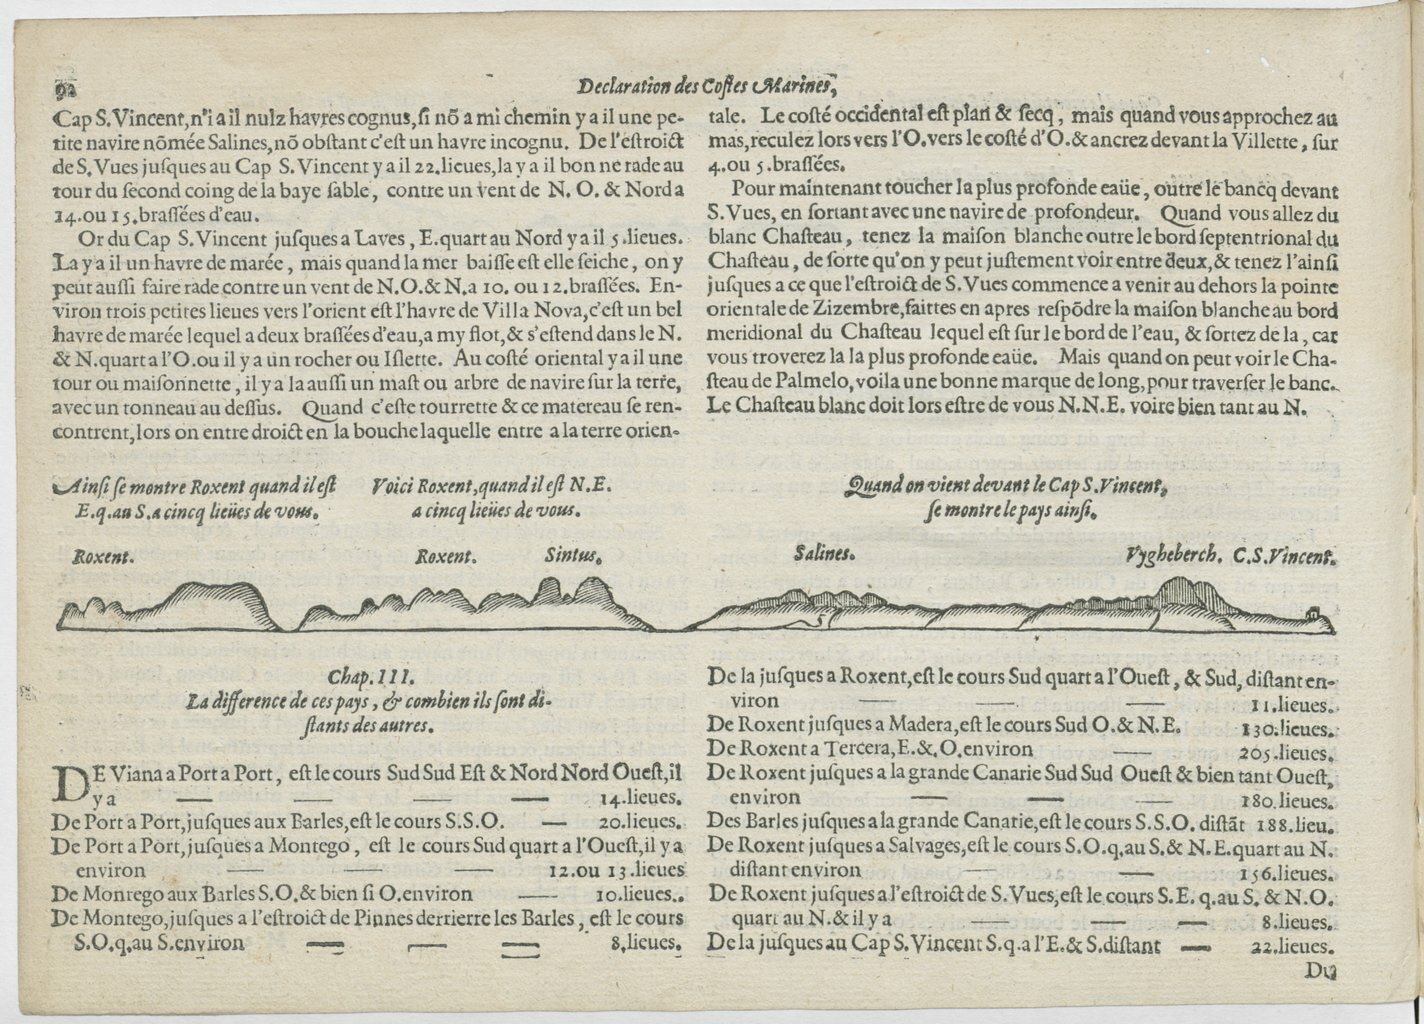 92
Declaration des Costes Marines,
Cap S. Vincent, n'i a il nulz havres cognus, si nõ a mi chemin y a il une pe-
tite navire nõmée Salines, nõ obstant c'est un havre incognu. De l'estroict
de S. Vues jusques au Cap S. Vincent y a il 22. lieues, la y a il bonne rade au
tour du second coing de la baye sable, contre un vent de N. O. & Nord a
14. ou 15. brassées d'eau.
Or du Cap S. Vincent jusques a Laves, E. quart au Nord y a il 5. lieues.
La y a il un havre de marée, mais quand la mer baisse est elle seiche, on y
peut aussi faire rade contre un vent de N. O. & N. a 10. ou 12. brassées. En-
viron trois petites lieues vers l'orient est l'havre de Villa Nova, c'est un bel
havre de marée lequel a deux brassées d'eau, a my flot, & s'estend dans le N.
& N. quart a l'O. ou il y a un rocher ou Islette. Au costé oriental y a il une
tour ou maisonnette, il y a la aussi un mast ou arbre de navire sur la terre,
avec un tonneau au dessus. Quand c'este tourrette & ce matereau se ren-
contrent, lors on entre droict en la bouche laquelle entre a la terre orien-
tale. Le costé occidental est plan & secq, mais quand vous approchez au
mas, reculez lors vers l'O. vers le costé d'O. & ancrez devant la Villette, sur
4. ou 5. brassées.
Pour maintenant toucher la plus profonde eaüe, outre le bancq devant
S. Vues, en sortant avec une navire de profondeur. Quand vous allez du
blanc Chasteau, tenez la maison blanche outre le bord septentrional du
Chasteau, de sorte qu'on y peut justement voir entre deux, & tenez l'ainsi
jusques a ce que l'estroict de S. Vues commence a venir au dehors la pointe
orientale de Zizembre, faittes en apres respõdre la maison blanche au bord
meridional du Chasteau lequel est sur le bord de l'eau, & sortez de la, car
vous troverez la la plus profonde eaüe. Mais quand on peut voir le Cha-
steau de Palmelo, voila une bonne marque de long, pour traverser le banc.
Le Chasteau blanc doit lors estre de vous N. N. E. voire bien tant au N.
Ainsi se montre Roxent quand il est
E. q. au S. a cinq lieües de vous.
Voici Roxent, quand il est N. E.
a cinq lieües de vous.
Quand on vient devant le Cap S. Vincent,
se montre le pays ainsi.
Roxent. Roxent. Sintus. Salines. Vygheberch. C. S. Vincent.
Chap. III.
La difference de ces pays, & combien ils sont di-
stants des autres.
DE Viana a Port a Port, est le cours Sud Sud Est & Nord Nord Ouest, il
y a — — — — 14. lieues.
De Port a Port, jusques aux Barles, est le cours S. S. O. — 20. lieues.
De Port a Port, jusques a Montego, est le cours Sud quart a l'Ouest, il y a
environ — — — 12. ou 13. lieues
De Montego aux Barles S. O. & bien si O. environ — 10. lieues.
De Montego, jusques a l'estroict de Pinnes derrierre les Barles, est le cours
S. O. q. au S. environ — — — 8. lieues.
De la jusques a Roxent, est le cours Sud quart a l'Ouest, & Sud, distant en-
viron — — — 11. lieues.
De Roxent jusques a Madera, est le cours Sud O. & N. E. 130. lieues.
De Roxent a Tercera, E. & O. environ — 205. lieues.
De Roxent jusques a la grande Canarie Sud Sud Ouest & bien tant Ouest,
environ — — — 180. lieues.
Des Barles jusques a la grande Canarie, est le cours S. S. O. distãt 188. lieu.
De Roxent jusques a Salvages, est le cours S. O. q. au S. & N. E. quart au N.
distant environ — — 156. lieues.
De Roxent jusques a l'estroict de S. Vues, est le cours S. E. q. au S. & N. O.
quart au N. & il y a — — — 8. lieues.
De la jusques au Cap S. Vincent S. q. a l'E. & S. distant — 22. lieues.
Du